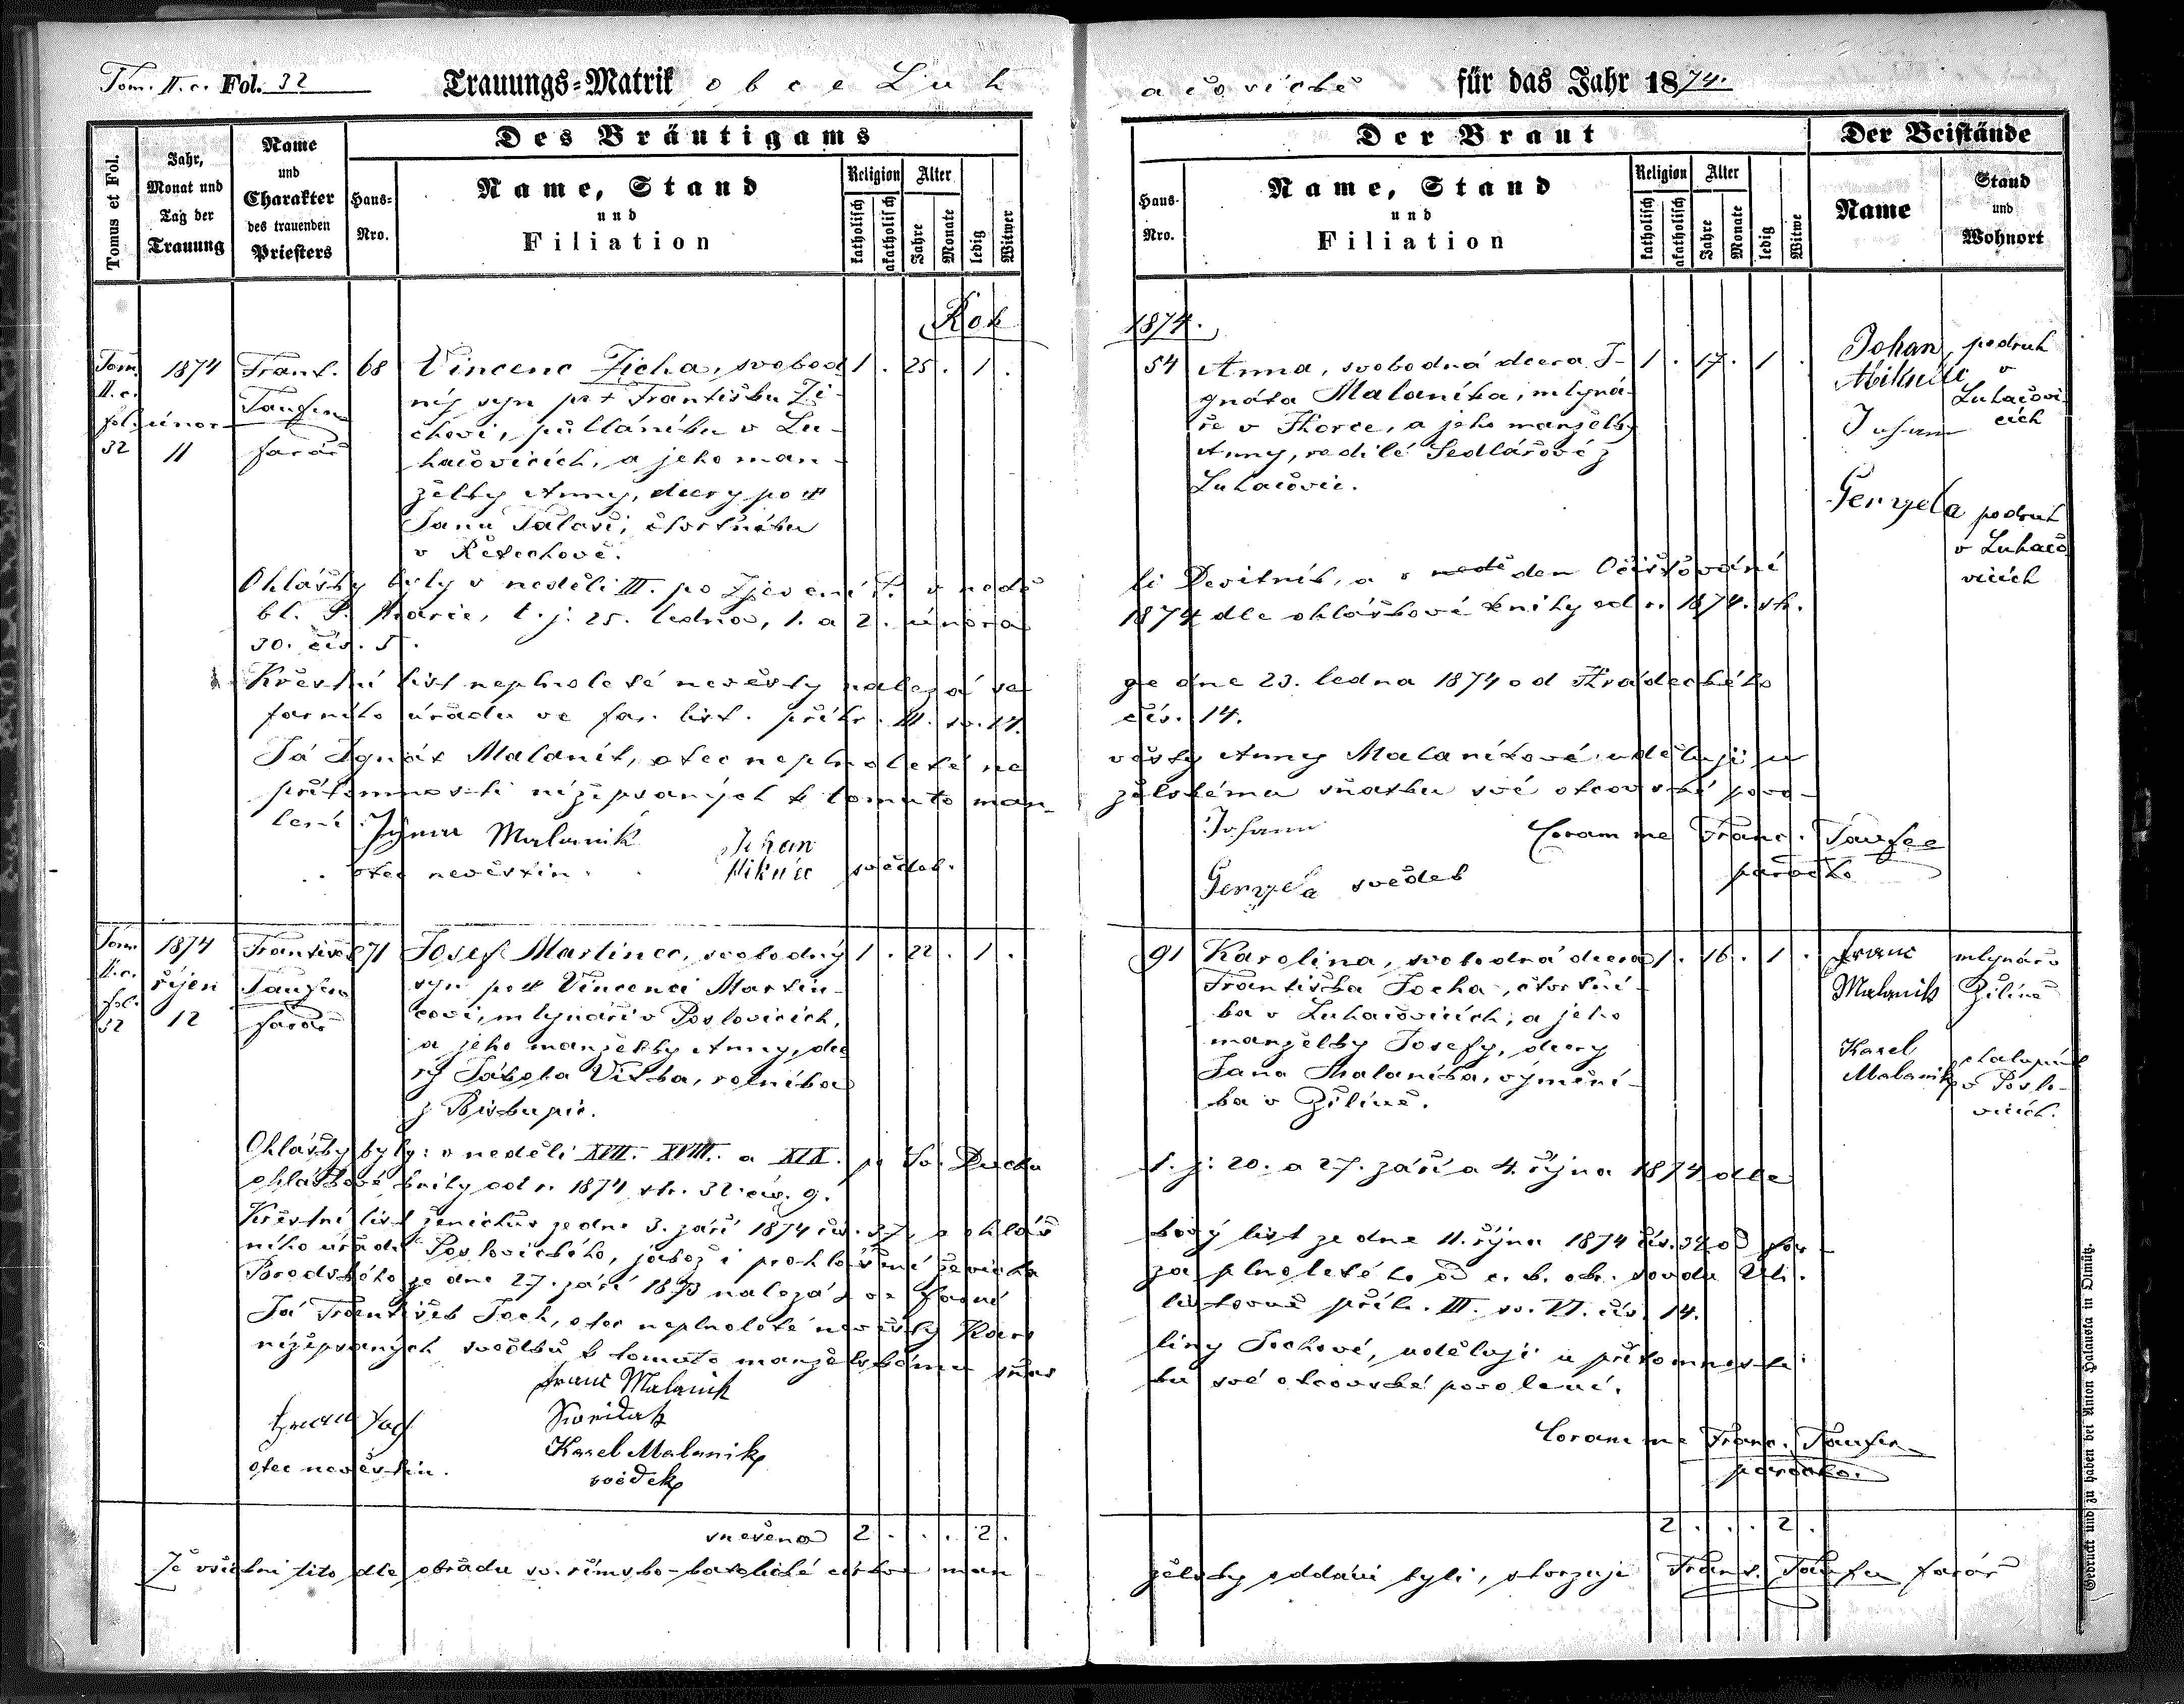 Tom. II. c. Fol. 32 Trauungs-Matrik obce Luh
ačovické für das Jahr 1874.
Des Bräutigams
Der Braut
Der Beistände
Tomus et Fol.
Jahr,
Monat und
Tag der
Trauung
Name
und
Charakter
des trauenden
Priesters
Haus-
Nro.
Name, Stand
und
Filiation
Religion
katholisch
akatholisch
Alter
Jahre
Monate
ledig
Witwer
Haus-
Nro.
Name, Stand
und
Filiation
Religion
katholisch
akatholisch
Alter
Jahre
Monate
ledig
Witwe
Name
Stand
und
Wohnort
Rok
1874.
Tom.
II. c.
fol.
32
1874
únor
11
Frant.
Taufer
farář
68
Vincenc Zicha, svobod 1 . 25 . 1 .
ný syn po † Františku Zi-
chovi, půlláníku v Lu-
hačovicích, a jeho man-
želky Anny, dcery po †
Janu Talaši, čtvrtníku
v Řetechově.
54
Anna, svobodná dcera I- 1 . 17 . 1 .
gnáta Malaníka, mlyná-
ře v Horce, a jeho manželky
Anny, rodilé Sedlářové z
Luhačovic.
Johan
Mikulec
podruh
v
Luhačovi
cích
Johann
Geryela
podruh
v Luhačo
vicích
Ohlášky byly v neděli III. po Zjevení P. v nedě
li Devítník, a v den Očišťování
bl. P. Marie, t. j. 25. ledna, 1. a 2. února
1874 dle ohláškové knihy od r. 1874. str.
30. čís. 5.
Křestní list neplnoleté nevěsty nalezá se
ze dne 23. ledna 1874 od Hradeckého
farního úřadu ve far. list. příhr. III. sv. 14.
čís. 14.
Já Ignát Malaník, otec neplnoleté ne
věsty Anny Malaníkové uděluji u
přítomnosti nížepsaných k tomuto man-
želskému sňatku své otcovské povo-
lení.
Malanik
otec nevěstin.
Johan
Mikulec svědek.
Johann
Geryela svědek
Coram me Franc. Taufer
parocho
Tom.
II. c.
fol.
32
1874
říjen
12
František
Taufer
farář
271
Josef Martinec, svobodný 1 . 22 . 1 .
syn po † Vincenci Martin-
covi, mlynáři v Pozlovicích,
a jeho manželky Anny, dce
ry Jakoba Vitka, rolníka
z Biskupic.
91
Karolina, svobodná dcera 1 . 16 . 1 .
Františka Jocha, čtvrtní-
ka v Luhačovicích, a jeho
manželky Josefy, dcery
Jana Malaníka, výmění-
ka v Žilíně.
Franc
Malanik
mlynář v
Žilíně
Karel
Malanik
chalupník
v Pozlo-
vicích.
Ohlášky byly: v neděli XVII. XVIII. a XIX. po sv. Duchu
t. j. 20. a 27. září a 4. října 1874 dle
ohláškové knihy od r. 1874 str. 32 čís. 9.
Křestní list ženichův ze dne 3. září 1874 čís. 37, a ohláš
kový list ze dne 11. října 1874 čís. 32 od far-
ního úřadu Pozlovického, jakož i prohlášení ženicha
za plnoletého od c. k. okr. soudu Uh.
Brodského ze dne 27. září 1873 nalezá se farní
listovně příh. III. sv. VI. čís. 14.
Já František Joch, otec neplnoleté nevěsty Karo
liny Jochové, uděluji u přítomnosti
nížepsaných svědků k tomuto manželskému sňat
ku své otcovské povolení.
Franc Malanik
otec nevěstin.
Karel Malanik
svědek
Coram me Franc. Taufer
parocho.
snešeno 2 . . . 2 .
2 . . . 2 .
Že všichni tito dle obřadu sv. římsko-katolické církve man
želsky oddáni byli, stvrzuje Frant. Taufer farář
Gedruckt und zu haben bei Anton Halauska in Olmütz.